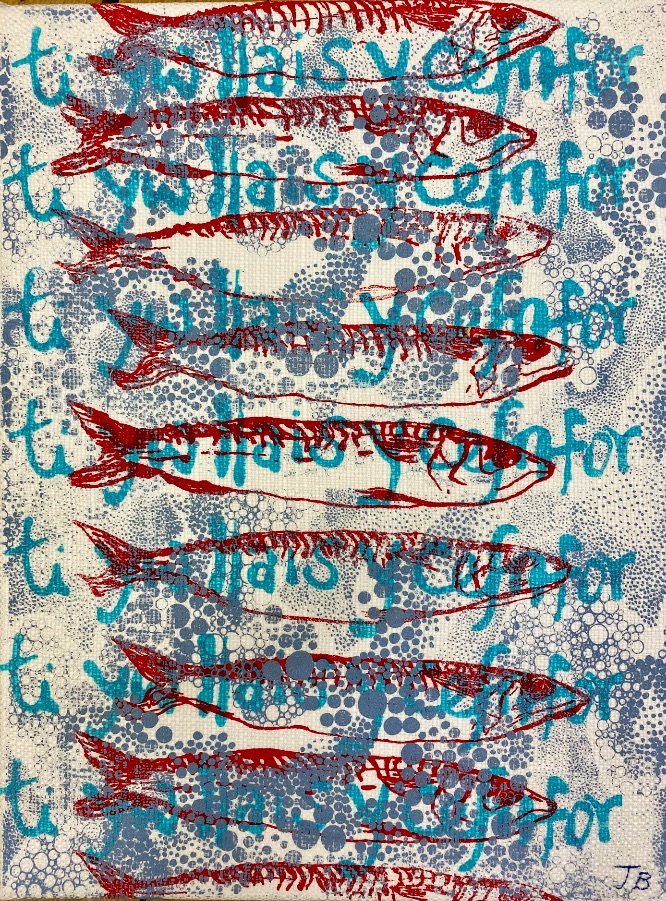 ti yw llais y cefnfor
ti yw llais y cefnfor
ti yw llais y cefnfor
ti yw llais y cefnfor
ti yw llais y cefnfor
ti yw llais y cefnfor
ti yw llais y cefnfor
JB